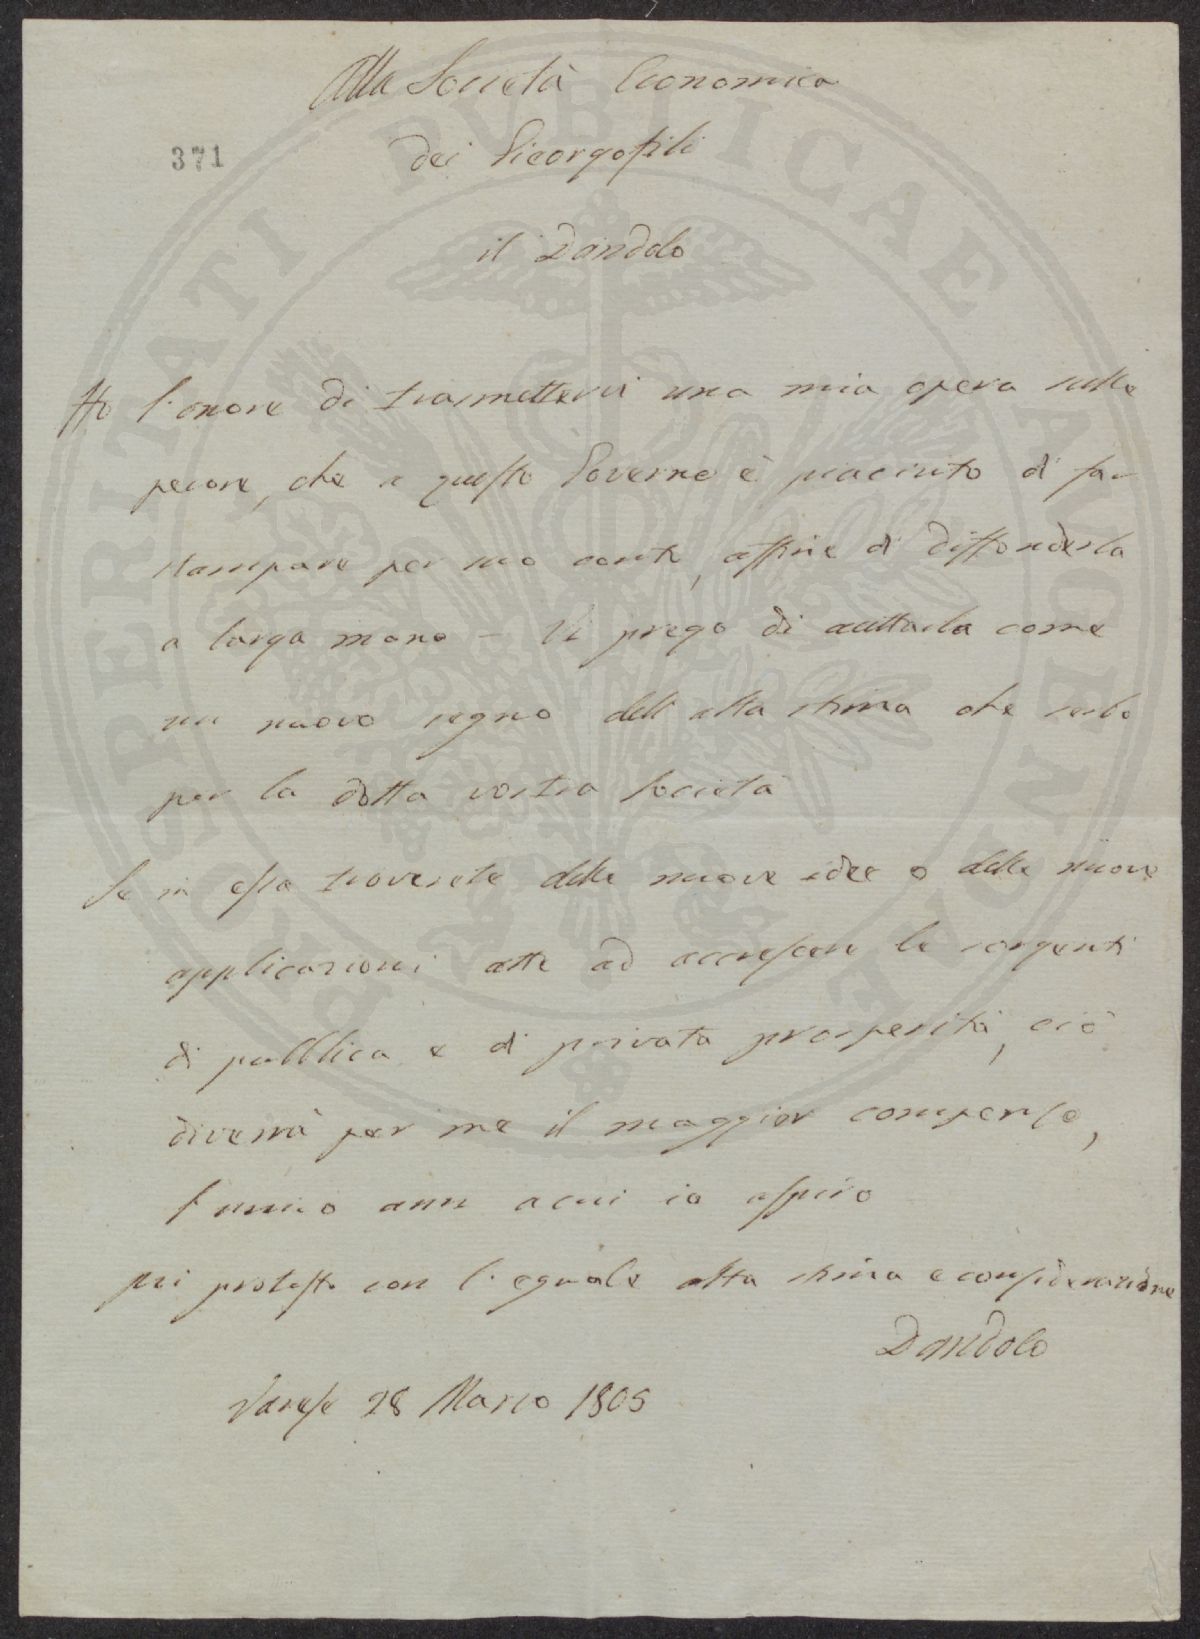 Alla Società Economica
371
dei Gieorgofili
il Dandolo
Ho l'onore di trasmettervi una mia opera sulle
pecore, che a questo Governo è piaciuto di far
stampare per suo conto, affine di diffonderla
a larga mano – Vi prego di accettarla come
un nuovo segno dell'alta stima che serbo
per la dotta vostra Società
Se in essa troverete delle nuove idee o delle nuove
applicazioni atte ad accrescere le sorgenti
di pubblica e di privata prosperità, ciò
diverrà per me il maggior compenso,
l'unico anzi a cui io aspiro
protesto con l'eguale alta stima e considerazione
Dandolo
Varese 28 Marzo 1805
PROSPERITATI PVBLICAE AVGENDAE